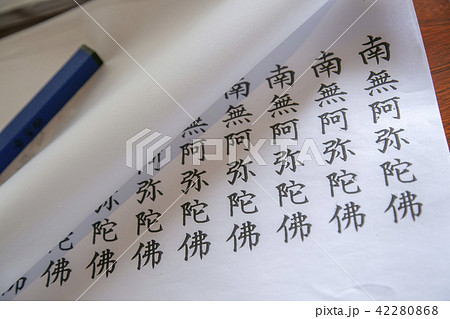 南無阿弥陀佛
南無阿弥陀佛
南無阿弥陀佛
南無阿弥陀佛
無阿弥陀佛
阿弥陀佛
弥陀佛
陀佛
佛
PIXTA
pixta.jp - 42280868